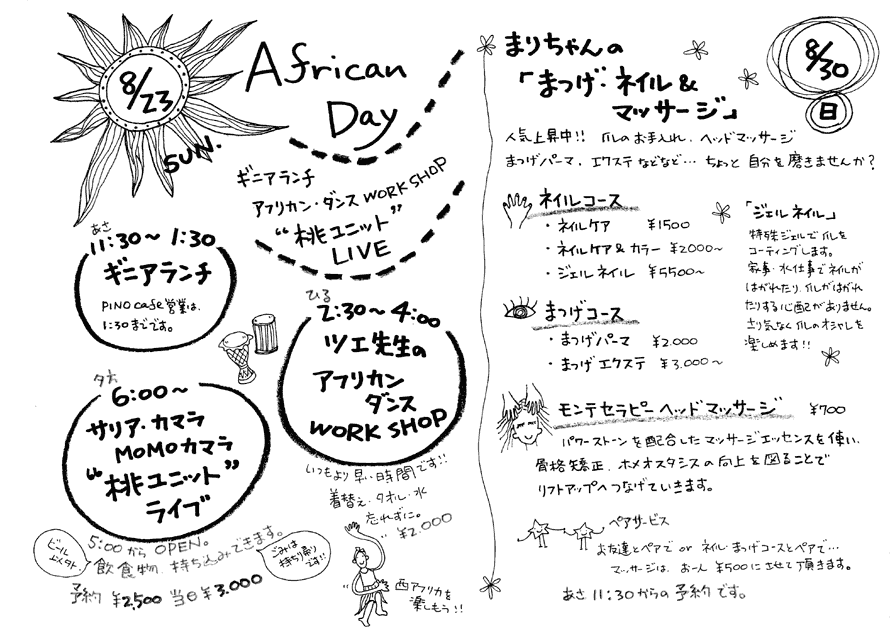 8/23
SUN.
African
Day
ギニアランチ
アフリカン・ダンス WORK SHOP
"桃ユニット"
LIVE
あさ
11:30〜1:30
ギニアランチ
PINO cafe営業は、
1:30までです。
ひる
2:30〜4:00
ツエ先生の
アフリカン
ダンス
WORK SHOP
いつもより早い時間です!!
着替え、タオル、水
忘れずに。
¥2.000
夕方
6:00〜
サリア・カマラ
MOMOカマラ
"桃ユニット"
ライブ
5:00から OPEN。
飲食物、持ち込みできます。
ごみは
持ち帰り
です!!
予約 ¥2,500 当日¥3.000
"西アフリカを
楽しもう!!
まりちゃんの
「まつげ・ネイル&
マッサージ」
8/30
日
人気上昇中!! 爪のお手入れ、ヘッドマッサージ
まつげパーマ、エクステなどなど… ちょっと自分を磨きませんか?
ネイルコース
・ネイルケア ¥1500
・ネイルケア&カラー ¥2000〜
・ジェルネイル ¥5500〜
「ジェルネイル」
特殊ジェルで爪を
コーティングします。
家事・水仕事でネイルが
はがれたり、爪がはがれ
たりする心配がありません。
さり気なく爪のオシャレを
楽しめます!!
まつげコース
・まつげパーマ ¥2.000
・まつげエクステ ¥3.000〜
モンテセラピーヘッドマッサージ ¥700
パワーストーンを配合したマッサージエッセンスを使い、
骨格矯正、ホメオスタシスの向上を図ることで
リフトアップへつなげていきます。
ペアサービス
お友達とペアで or ネイル・まつげコースとペアで…
マッサージは、お一人¥500にさせて頂きます。
あさ11:30からの予約です。